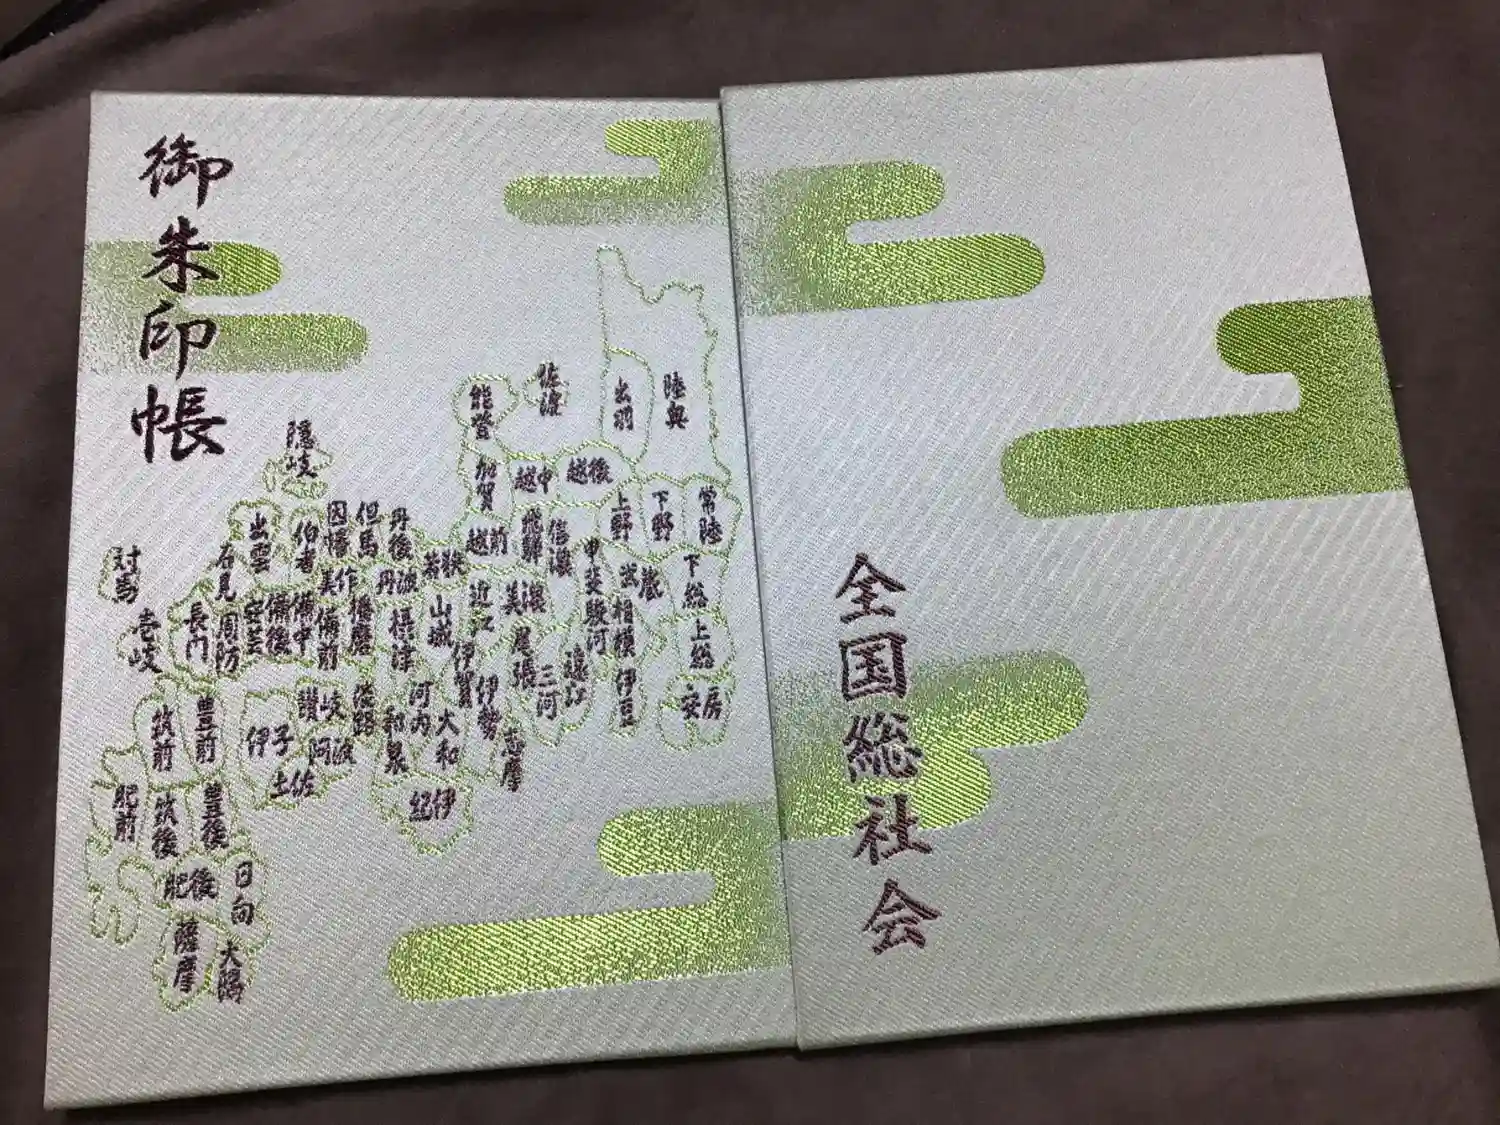 御朱印帳
佐渡
能登
出羽
陸奥
隠岐
加賀
越中
越後
上野
下野
常陸
対馬
壱岐
石見
出雲
伯耆
因幡
但馬
丹後
若狭
越前
飛騨
信濃
甲斐
武蔵
下総
長門
周防
安芸
備後
備中
美作
備前
播磨
丹波
摂津
山城
近江
美濃
尾張
三河
遠江
駿河
相模
伊豆
上総
安房
筑前
豊前
伊予
讃岐
阿波
土佐
淡路
和泉
河内
大和
伊賀
伊勢
志摩
紀伊
肥前
筑後
豊後
肥後
日向
薩摩
大隅
全国総社会